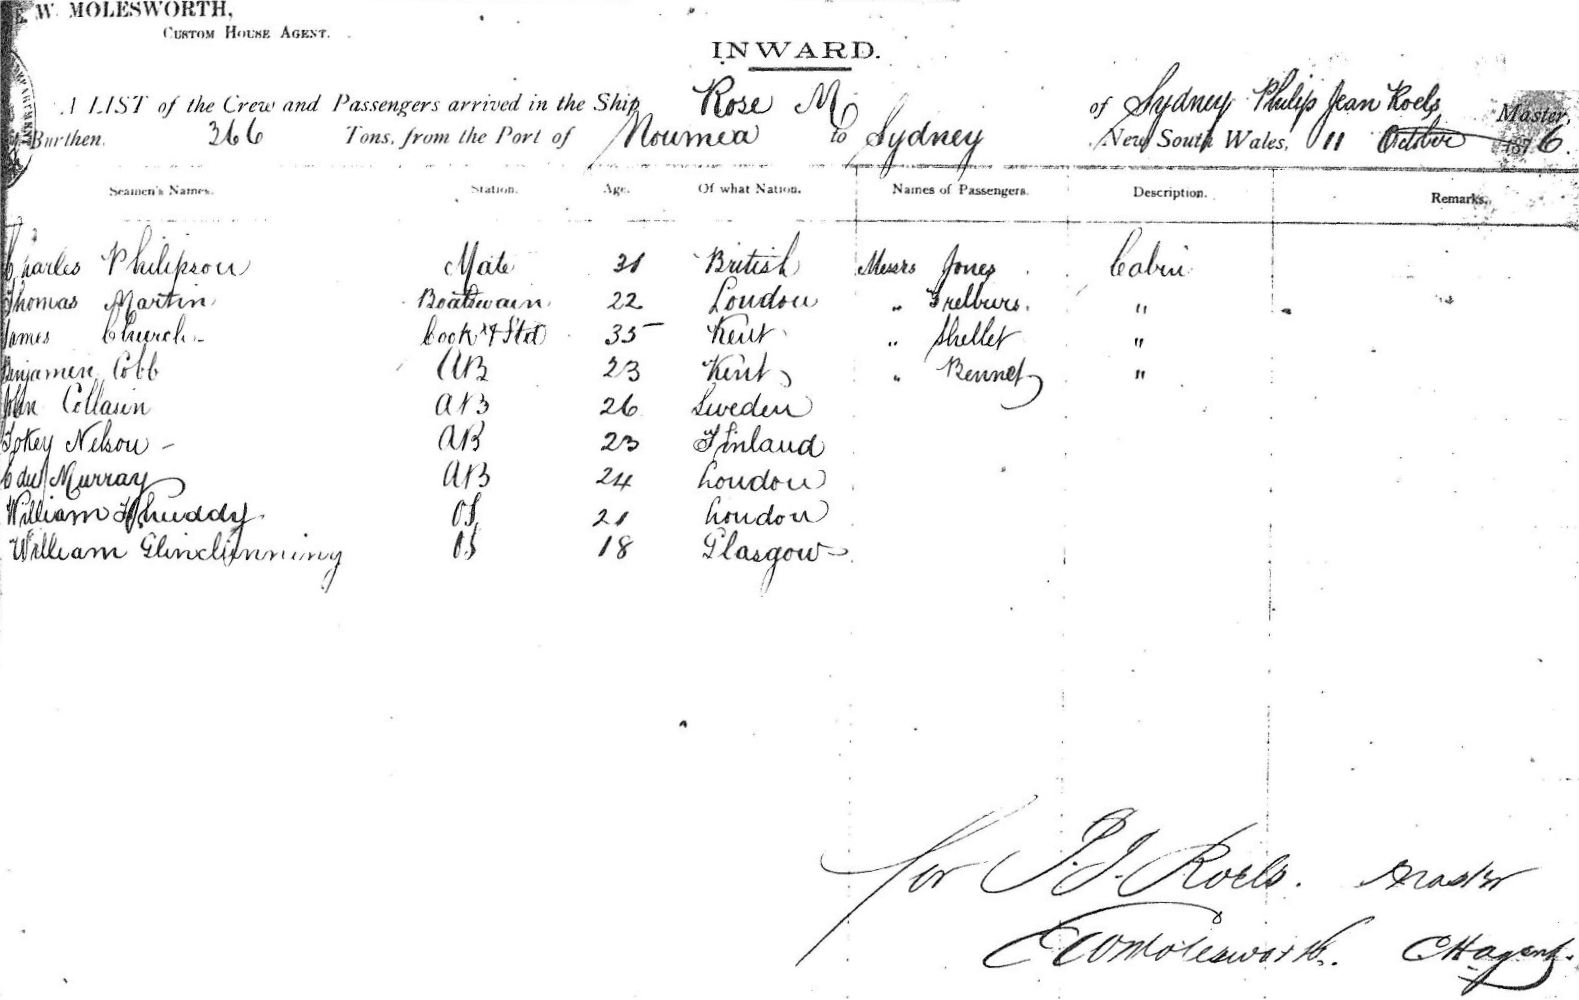 W. MOLESWORTH,
CUSTOM HOUSE AGENT.
INWARD.
A LIST of the Crew and Passengers arrived in the Ship Rose M of Sydney Philip Jean Roels Master,
Burthen. 366 Tons, from the Port of Noumea to Sydney New South Wales, 11 October 1876.
Seamen's Names. Station. Age. Of what Nation. Names of Passengers. Description. Remarks.
Charles Philipson Mate 31 British Messrs Jones Cabin
Thomas Martin Boatswain 22 London " "
James Church Cook & Std 35 Kent " Shellet "
Benjamen Cobb AB 23 Kent " Bennet "
AB 26 Sweden
Nelson AB 23 Finland
Murray AB 24 London
William OS 21 London
William OS 18 Glasgow
for P. J. Roels. Master
E W Molesworth. C H agent.